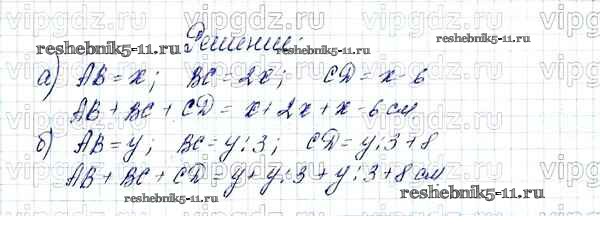 vipgdz.ru vipgdz.ru vipgdz.ru
Решение:
reshebnik5-11.ru reshebnik5-11.ru
а) AB = x; BC = 2x; CD = x - 6
AB + BC + CD = x + 2x + x - 6 см
б) AB = y; BC = y : 3; CD = y : 3 + 8
AB + BC + CD y + y : 3 + y : 3 + 8 см
reshebnik5-11.ru